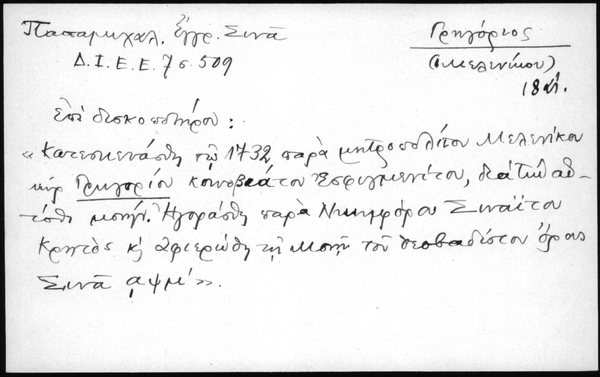 Παπαμιχαλ. Ἔγγρ. Σινᾶ
Δ.Ι.Ε.Ε. 7ς. 509
Γρηγόριος
(Μελενίκου)
18 αἰ.
Ἐπὶ δισκοποτήρου:
«Κατεσκευάσθη τῷ 1732 παρὰ μητροπολίτου Μελενίκου
κὺρ Γρηγορίου κοινοβιάτου Ἐσφιγμενίτου, διὰ τὴν αὐ-
τόθι μονήν. Ἠγοράσθη παρὰ Νικηφόρου Σιναΐτου
Κρητὸς κ ἀφιερώθη τῇ Μονῇ τοῦ θεοβαδίστου ὄρους
Σινᾶ ͵αψμ΄».